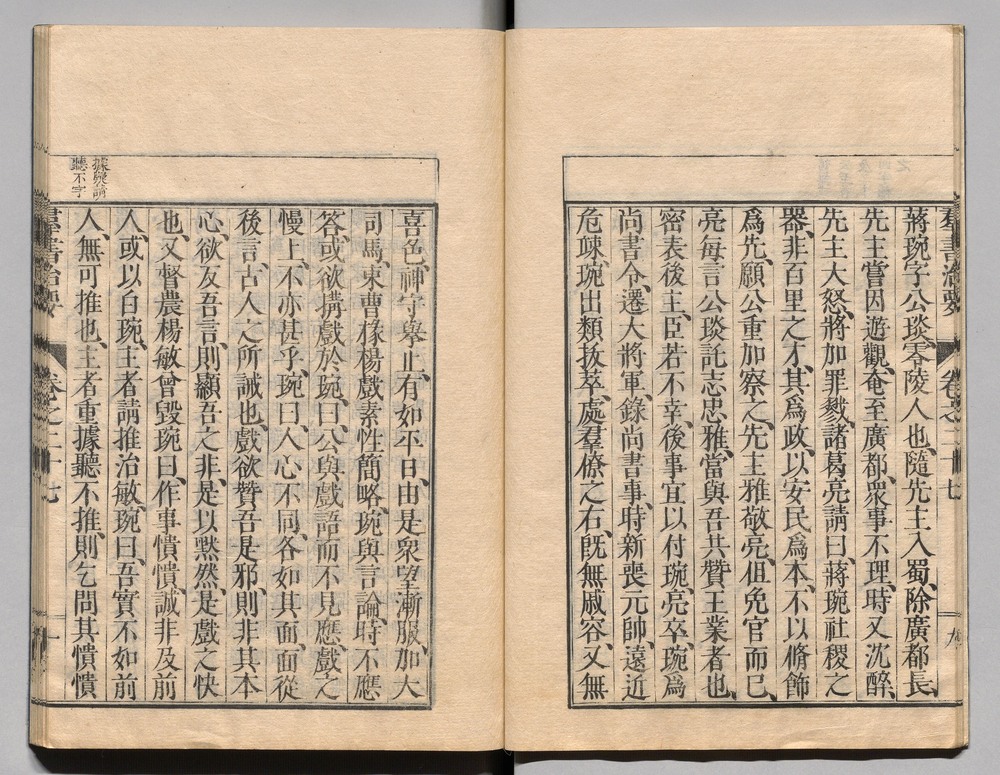 羣書治要 卷之二十七 九
蔣琬字公琰、零陵人也、隨先主入蜀、除廣都長、
先主嘗因遊觀、奄至廣都、衆事不理、時又沈醉、
先主大怒、將加罪戮、諸葛亮請曰、蔣琬社稷之
器、非百里之才、其爲政以安民爲本、不以脩飾
爲先、願公重加察之、先主雅敬亮、但免官而已、
亮每言公琰託志忠雅、當與吾共贊王業者也、
密表後主、臣若不幸、後事宜以付琬、亮卒、琬爲
尚書令、遷大將軍、錄尚書事、時新喪元帥、遠近
危竦、琬出類拔萃、處羣僚之右、既無戚容、又無
喜色、神守舉止、有如平日、由是衆望漸服、加大
司馬、東曹掾楊戲素性簡略、琬與言論、時不應
答、或欲搆戲於琬曰、公與戲語而不見應、戲之
慢上、不亦甚乎、琬曰、人心不同、各如其面、面從
後言、古人之所誡也、戲欲贊吾是邪、則非其本
心、欲友吾言、則顯吾之非、是以黙然、是戲之快
也、又督農楊敏曾毀琬曰、作事憒憒、誠非及前
人、或以白琬、主者請推治敏、琬曰、吾實不如前
人、無可推也、主者重據聽不推、則乞問其憒憒
據疑請
聽不字
羣書治要 卷之二十七